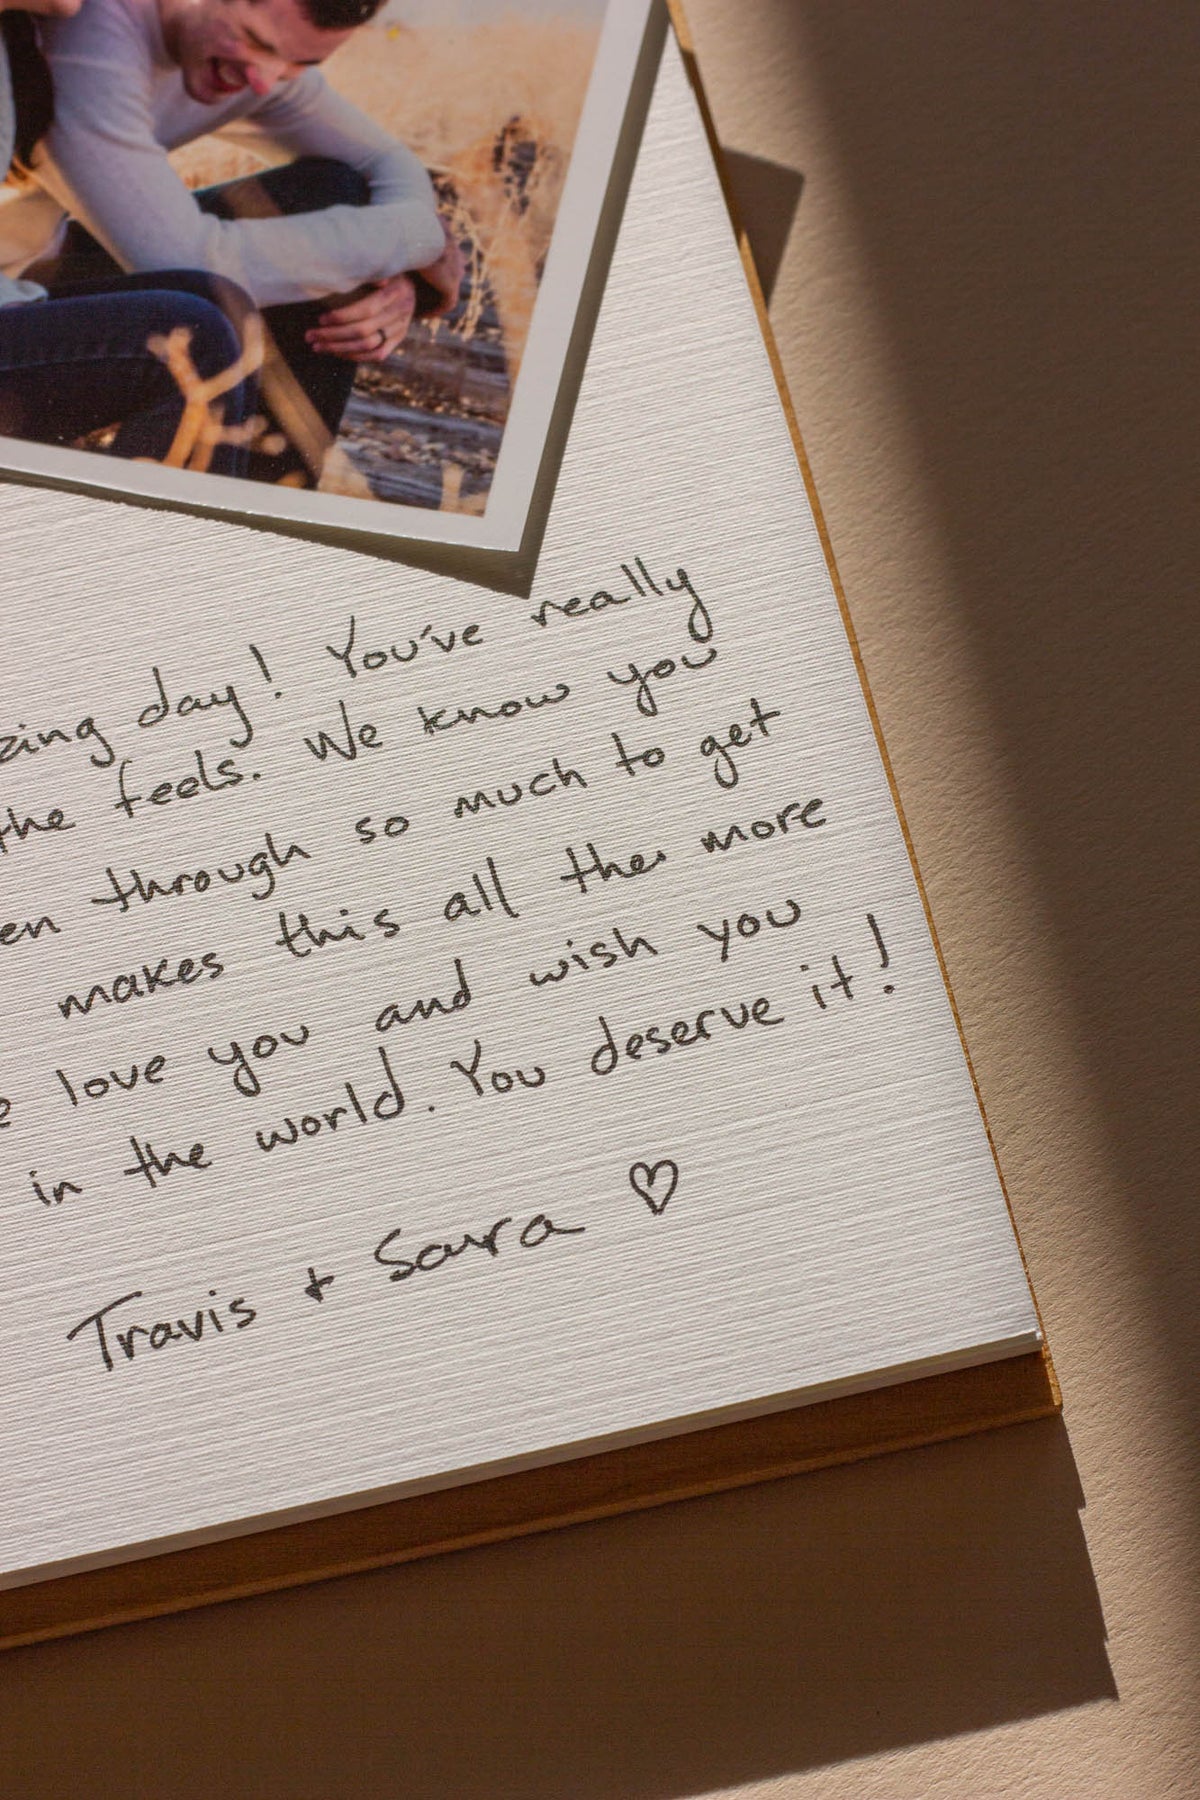 zing day! You've really
the feels. We know you
en through so much to get
makes this all the more
e love you and wish you
in the world. You deserve it!
Travis + Saura ♡